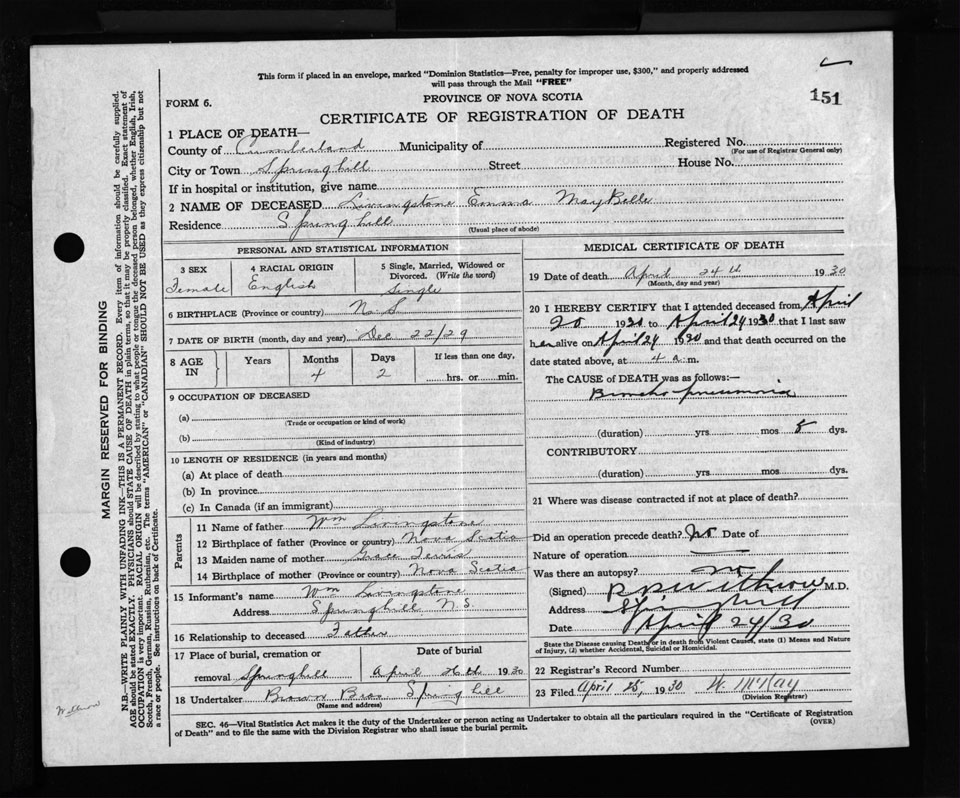 This form if placed in an envelope, marked "Dominion Statistics—Free, penalty for improper use, $300," and properly addressed
will pass through the Mail "FREE"
151
FORM 6.
PROVINCE OF NOVA SCOTIA
CERTIFICATE OF REGISTRATION OF DEATH
1 PLACE OF DEATH—
County of Cumberland Municipality of Registered No.
(For use of Registrar General only)
City or Town Springhill Street House No.
If in hospital or institution, give name
2 NAME OF DECEASED Livingstone Emma May Belle
Residence Springhill
(Usual place of abode)
PERSONAL AND STATISTICAL INFORMATION
3 SEX 4 RACIAL ORIGIN 5 Single, Married, Widowed or
Divorced. (Write the word)
Female English Single
6 BIRTHPLACE (Province or country) N.S
7 DATE OF BIRTH (month, day and year) Dec 22/29
8 AGE IN Years Months Days If less than one day,
4 2 hrs. or min.
9 OCCUPATION OF DECEASED
(a)
(Trade or occupation or kind of work)
(b)
(Kind of industry)
10 LENGTH OF RESIDENCE (in years and months)
(a) At place of death
(b) In province
(c) In Canada (if an immigrant)
Parents
11 Name of father Wm Livingstone
12 Birthplace of father (Province or country) Nova Scotia
13 Maiden name of mother Grace Lewis
14 Birthplace of mother (Province or country) Nova Scotia
15 Informant's name Wm Livingstone
Address Springhill N.S.
16 Relationship to deceased Father
17 Place of burial, cremation or Date of burial
removal Springhill April 26th 1930
18 Undertaker Brown Bros Springhill
(Name and address)
MEDICAL CERTIFICATE OF DEATH
19 Date of death April 24th 1930
(Month, day and year)
20 I HEREBY CERTIFY that I attended deceased from April
20 1930 to April 24 1930 that I last saw
her alive on April 24 1930 and that death occurred on the
date stated above, at 4 a. m.
The CAUSE of DEATH was as follows:—
Broncho pneumonia
(duration) yrs mos 8 dys.
CONTRIBUTORY
(duration) yrs. mos. dys.
21 Where was disease contracted if not at place of death?
Did an operation precede death? no Date of
Nature of operation
Was there an autopsy? no
(Signed) Withrow M.D.
Address Springhill
Date April 24/30
State the Disease causing Death or in death from Violent Causes, state (1) Means and Nature
of Injury, (2) whether Accidental, Suicidal or Homicidal.
22 Registrar's Record Number
23 Filed April 25, 1930 W. McKay
(Division Registrar)
SEC. 46—Vital Statistics Act makes it the duty of the Undertaker or person acting as Undertaker to obtain all the particulars required in the "Certificate of Registration
of Death" and to file the same with the Division Registrar who shall issue the burial permit. (OVER)
MARGIN RESERVED FOR BINDING
N.B.—WRITE PLAINLY WITH UNFADING INK—THIS IS A PERMANENT RECORD. Every item of information should be carefully supplied.
AGE should be stated EXACTLY. PHYSICIANS should STATE CAUSE OF DEATH in plain terms, so that it may be properly classified. Exact statement of
OCCUPATION is very important. RACIAL ORIGIN will be described by stating to what people or tongue the deceased person belonged, whether English, Irish,
Scotch, French, German, Russian, Ruthenian, etc. The terms "AMERICAN" or "CANADIAN" SHOULD NOT BE USED as they express citizenship but not
a race or people. See instructions on back of Certificate.